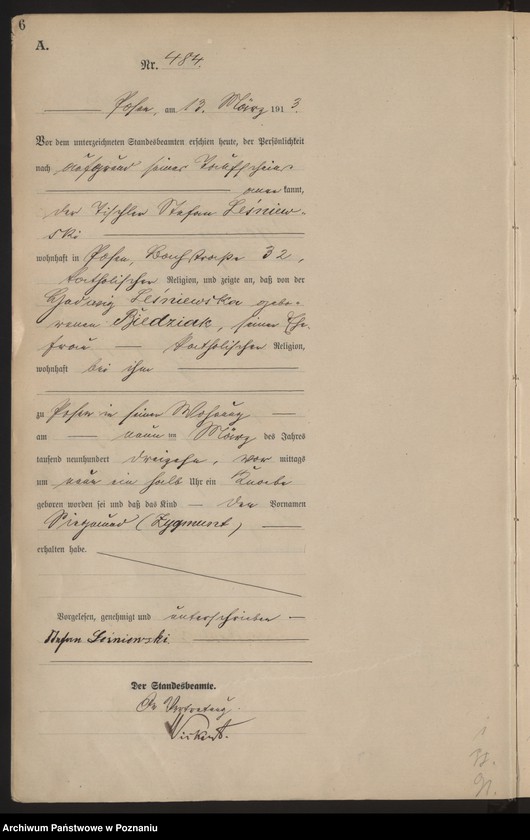 6
A.
Nr. 484.
Posen, am 13. März 1913.
Vor dem unterzeichneten Standesbeamten erschien heute, der Persönlichkeit
nach aufgrund seines Taufscheines
anerkannt,
der Tischler Stefan Leśniew-
ski
wohnhaft in Posen, Bachstraße 32,
katholischer Religion, und zeigte an, daß von der
Hedwig Leśniewska gebo-
renen Biedziak, seiner Ehe-
frau katholischer Religion,
wohnhaft bei ihm
zu Posen in seiner Wohnung
am neunten März des Jahres
tausend neunhundert dreizehn, vor mittags
um neun ein halb Uhr ein Knabe
geboren worden sei und daß das Kind den Vornamen
Siegmund (Zygmunt)
erhalten habe.
Vorgelesen, genehmigt und unterschrieben
Stefan Leśniewski
Der Standesbeamte.
In Vertretung.
Archiwum Państwowe w Poznaniu